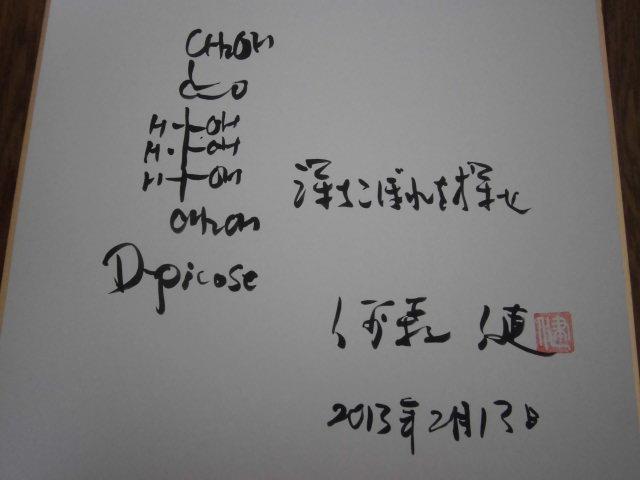 CH₂OH
C=O
H OH
H OH
H OH
CH₂OH
D-picose
落ちこぼれを探せ
何森 健
健
2013年2月13日